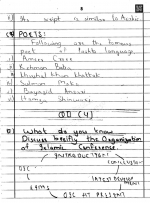 His script is similar to Arabic
POETS:
Following are the famous
poet of Pashto language.
Ameer Croor
Rehman Baba
Khushal khan khattak
Saleem Maks
Bayazid Ansari
Hamza Shinwari
Q (4)
What do you know
Discuss briefly the Organization
of Islamic Conference.
INTRODUCTION
CONCLUSION
OIC
LATEST DEVELOPMENT
AIMS
OIC AT PRESENT